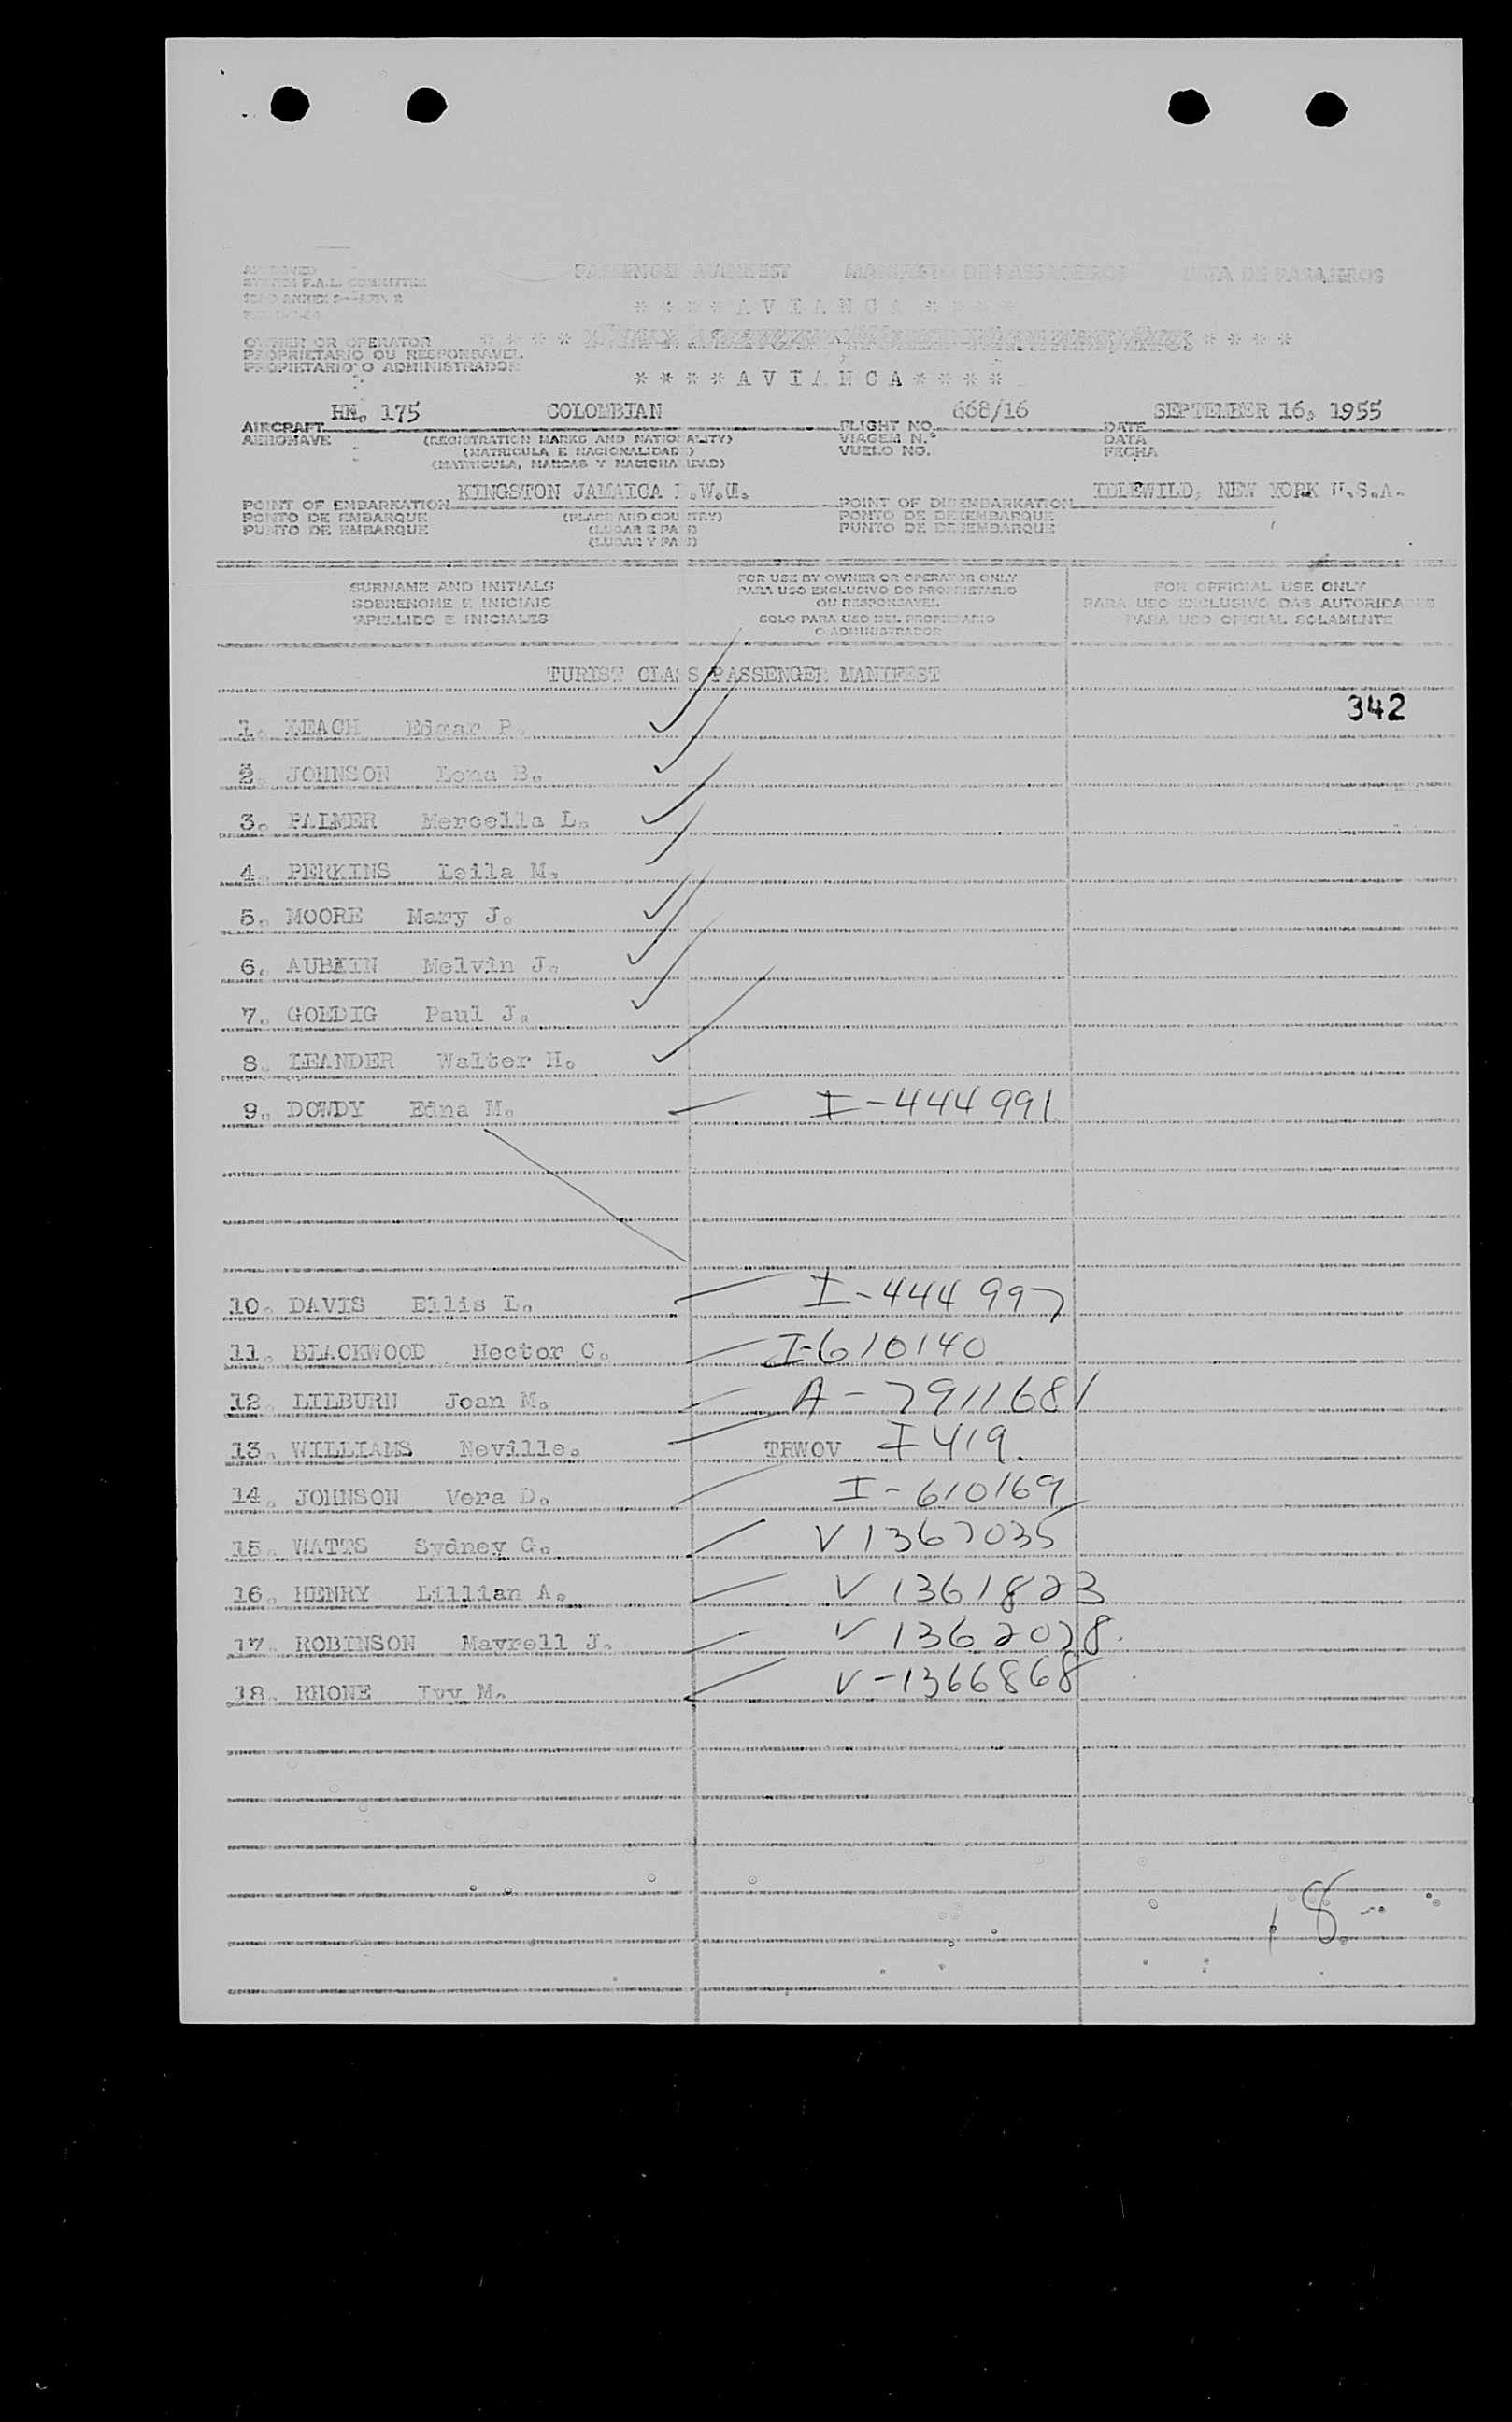 APPROVED
PASSENGER MANIFEST MANIFESTO DE PASSAGEIROS LISTA DE PASAJEROS
* * * * A V I A N C A * * * *
OWNER OR OPERATOR
PROPRIETARIO OU RESPONSAVEL
PROPIETARIO O ADMINISTRADOR
* * * * A V I A N C A * * * *
HK. 175 COLOMBIAN 668/16 SEPTEMBER 16, 1955
AIRCRAFT FLIGHT NO. DATE
AERONAVE (REGISTRATION MARKS AND NATIONALITY) VIAGEM N.º DATA
(MATRICULA E NACIONALIDADE) VUELO NO. FECHA
(MATRICULA, MARCAS Y NACIONALIDAD)
KINGSTON JAMAICA IDLEWILD, NEW YORK U.S.A.
POINT OF EMBARKATION POINT OF DISEMBARKATION
PONTO DE EMBARQUE (PLACE AND COUNTRY) PONTO DE DESEMBARQUE
PUNTO DE EMBARQUE (LUGAR E PAIS) PUNTO DE DESEMBARQUE
(LUGAR Y PAIS)
SURNAME AND INITIALS
SOBRENOME E INICIAIS
APELLIDO E INICIALES
FOR USE BY OWNER OR OPERATOR ONLY
PARA USO EXCLUSIVO DO PROPRIETARIO
OU RESPONSAVEL
SOLO PARA USO DEL PROPIETARIO
O ADMINISTRADOR
FOR OFFICIAL USE ONLY
PARA USO EXCLUSIVO DAS AUTORIDADES
PARA USO OFICIAL SOLAMENTE
TURIST CLASS PASSENGER MANIFEST
342
1. Edgar P.
2. JOHNSON Lena B.
3. PALMER Mercella L.
4. PERKINS Leila M.
5. MOORE Mary J.
6. AUBAIN Melvin J.
7. GOLDIG Paul J.
8. LEANDER Walter H.
9. DOWDY Edna M. I-444991
10. DAVIS Ellis L. I-444997
11. BLACKWOOD Hector C. I-610140
12. LILBURN Joan M. A-7911681
13. WILLIAMS Neville. TRWOV I 419.
14. JOHNSON Vera D. I-610169
15. WATTS Sydney G. V 1367035
16. HENRY Lillian A. V 1361823
17. ROBINSON Mavrell J. V 1362028.
18. RHONE Ivy M. V-1366868
18